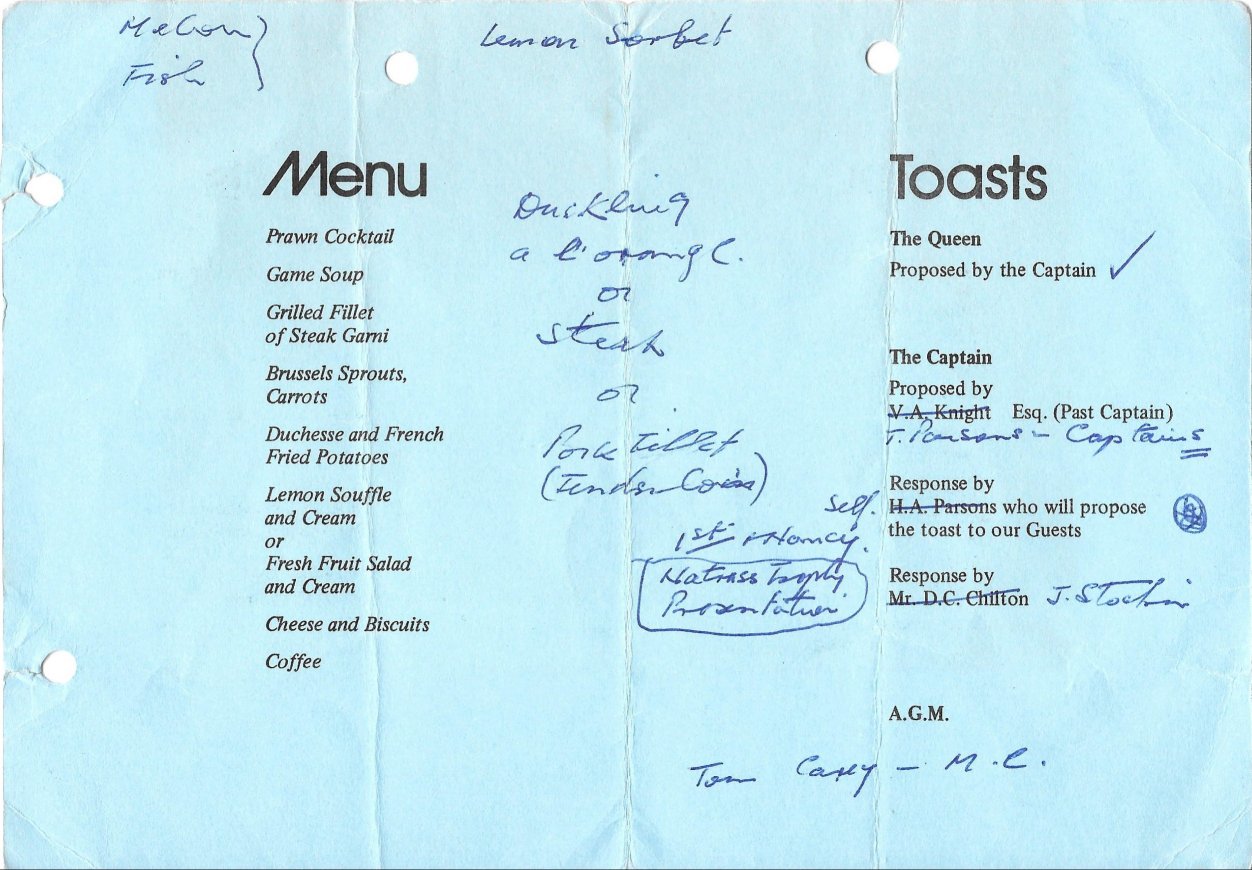 Melon
Fish
Lemon Sorbet
Menu
Prawn Cocktail
Game Soup
Grilled Fillet
of Steak Garni
Brussels Sprouts,
Carrots
Duchesse and French
Fried Potatoes
Lemon Souffle
and Cream
or
Fresh Fruit Salad
and Cream
Cheese and Biscuits
Coffee
Duckling
a l'orange.
or
Steak
or
Pork Fillet
(Tenderloin)
self.
1st
Trophy
Presentation
Toasts
The Queen
Proposed by the Captain ✓
The Captain
Proposed by
V.A. Knight Esq. (Past Captain)
T. Parsons – Captains
Response by
H.A. Parsons who will propose
the toast to our Guests
Response by
Mr. D.C. Chilton J.
A.G.M.
Tom Casey – M.C.